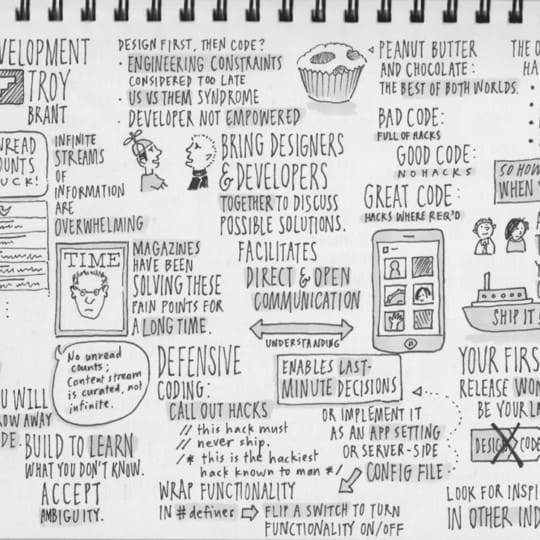 VELOPMENT
TROY
BRANT
NREAD
OUNTS
UCK!
INFINITE
STREAMS
OF
INFORMATION
ARE
OVERWHELMING
DESIGN FIRST, THEN CODE?
• ENGINEERING CONSTRAINTS
CONSIDERED TOO LATE
• US VS THEM SYNDROME
• DEVELOPER NOT EMPOWERED
BRING DESIGNERS
& DEVELOPERS
TOGETHER TO DISCUSS
POSSIBLE SOLUTIONS.
FACILITATES
DIRECT & OPEN
COMMUNICATION
UNDERSTANDING
TIME
MAGAZINES
HAVE BEEN
SOLVING THESE
PAIN POINTS FOR
A LONG TIME.
No unread
counts;
Content stream
is curated, not
infinite.
U WILL
ROW AWAY
DE.
BUILD TO LEARN
WHAT YOU DON'T KNOW.
ACCEPT
AMBIGUITY.
DEFENSIVE
CODING:
CALL OUT HACKS
// this hack must
// never ship.
/* this is the hackiest
hack known to man */
WRAP FUNCTIONALITY
IN #defines ⇨ FLIP A SWITCH TO TURN
FUNCTIONALITY ON/OFF
ENABLES LAST-
MINUTE DECISIONS
OR IMPLEMENT IT
AS AN APP SETTING
OR SERVER-SIDE
CONFIG FILE
PEANUT BUTTER
AND CHOCOLATE:
THE BEST OF BOTH WORLDS.
BAD CODE:
FULL OF HACKS
GOOD CODE:
NO HACKS
GREAT CODE:
HACKS WHERE REQ'D
THE O
HA
SO HOW
WHEN Y
SHIP IT
YOUR FIRS
RELEASE WON
BE YOUR LA
DESIGN CODE
LOOK FOR INSPI
IN OTHER IND